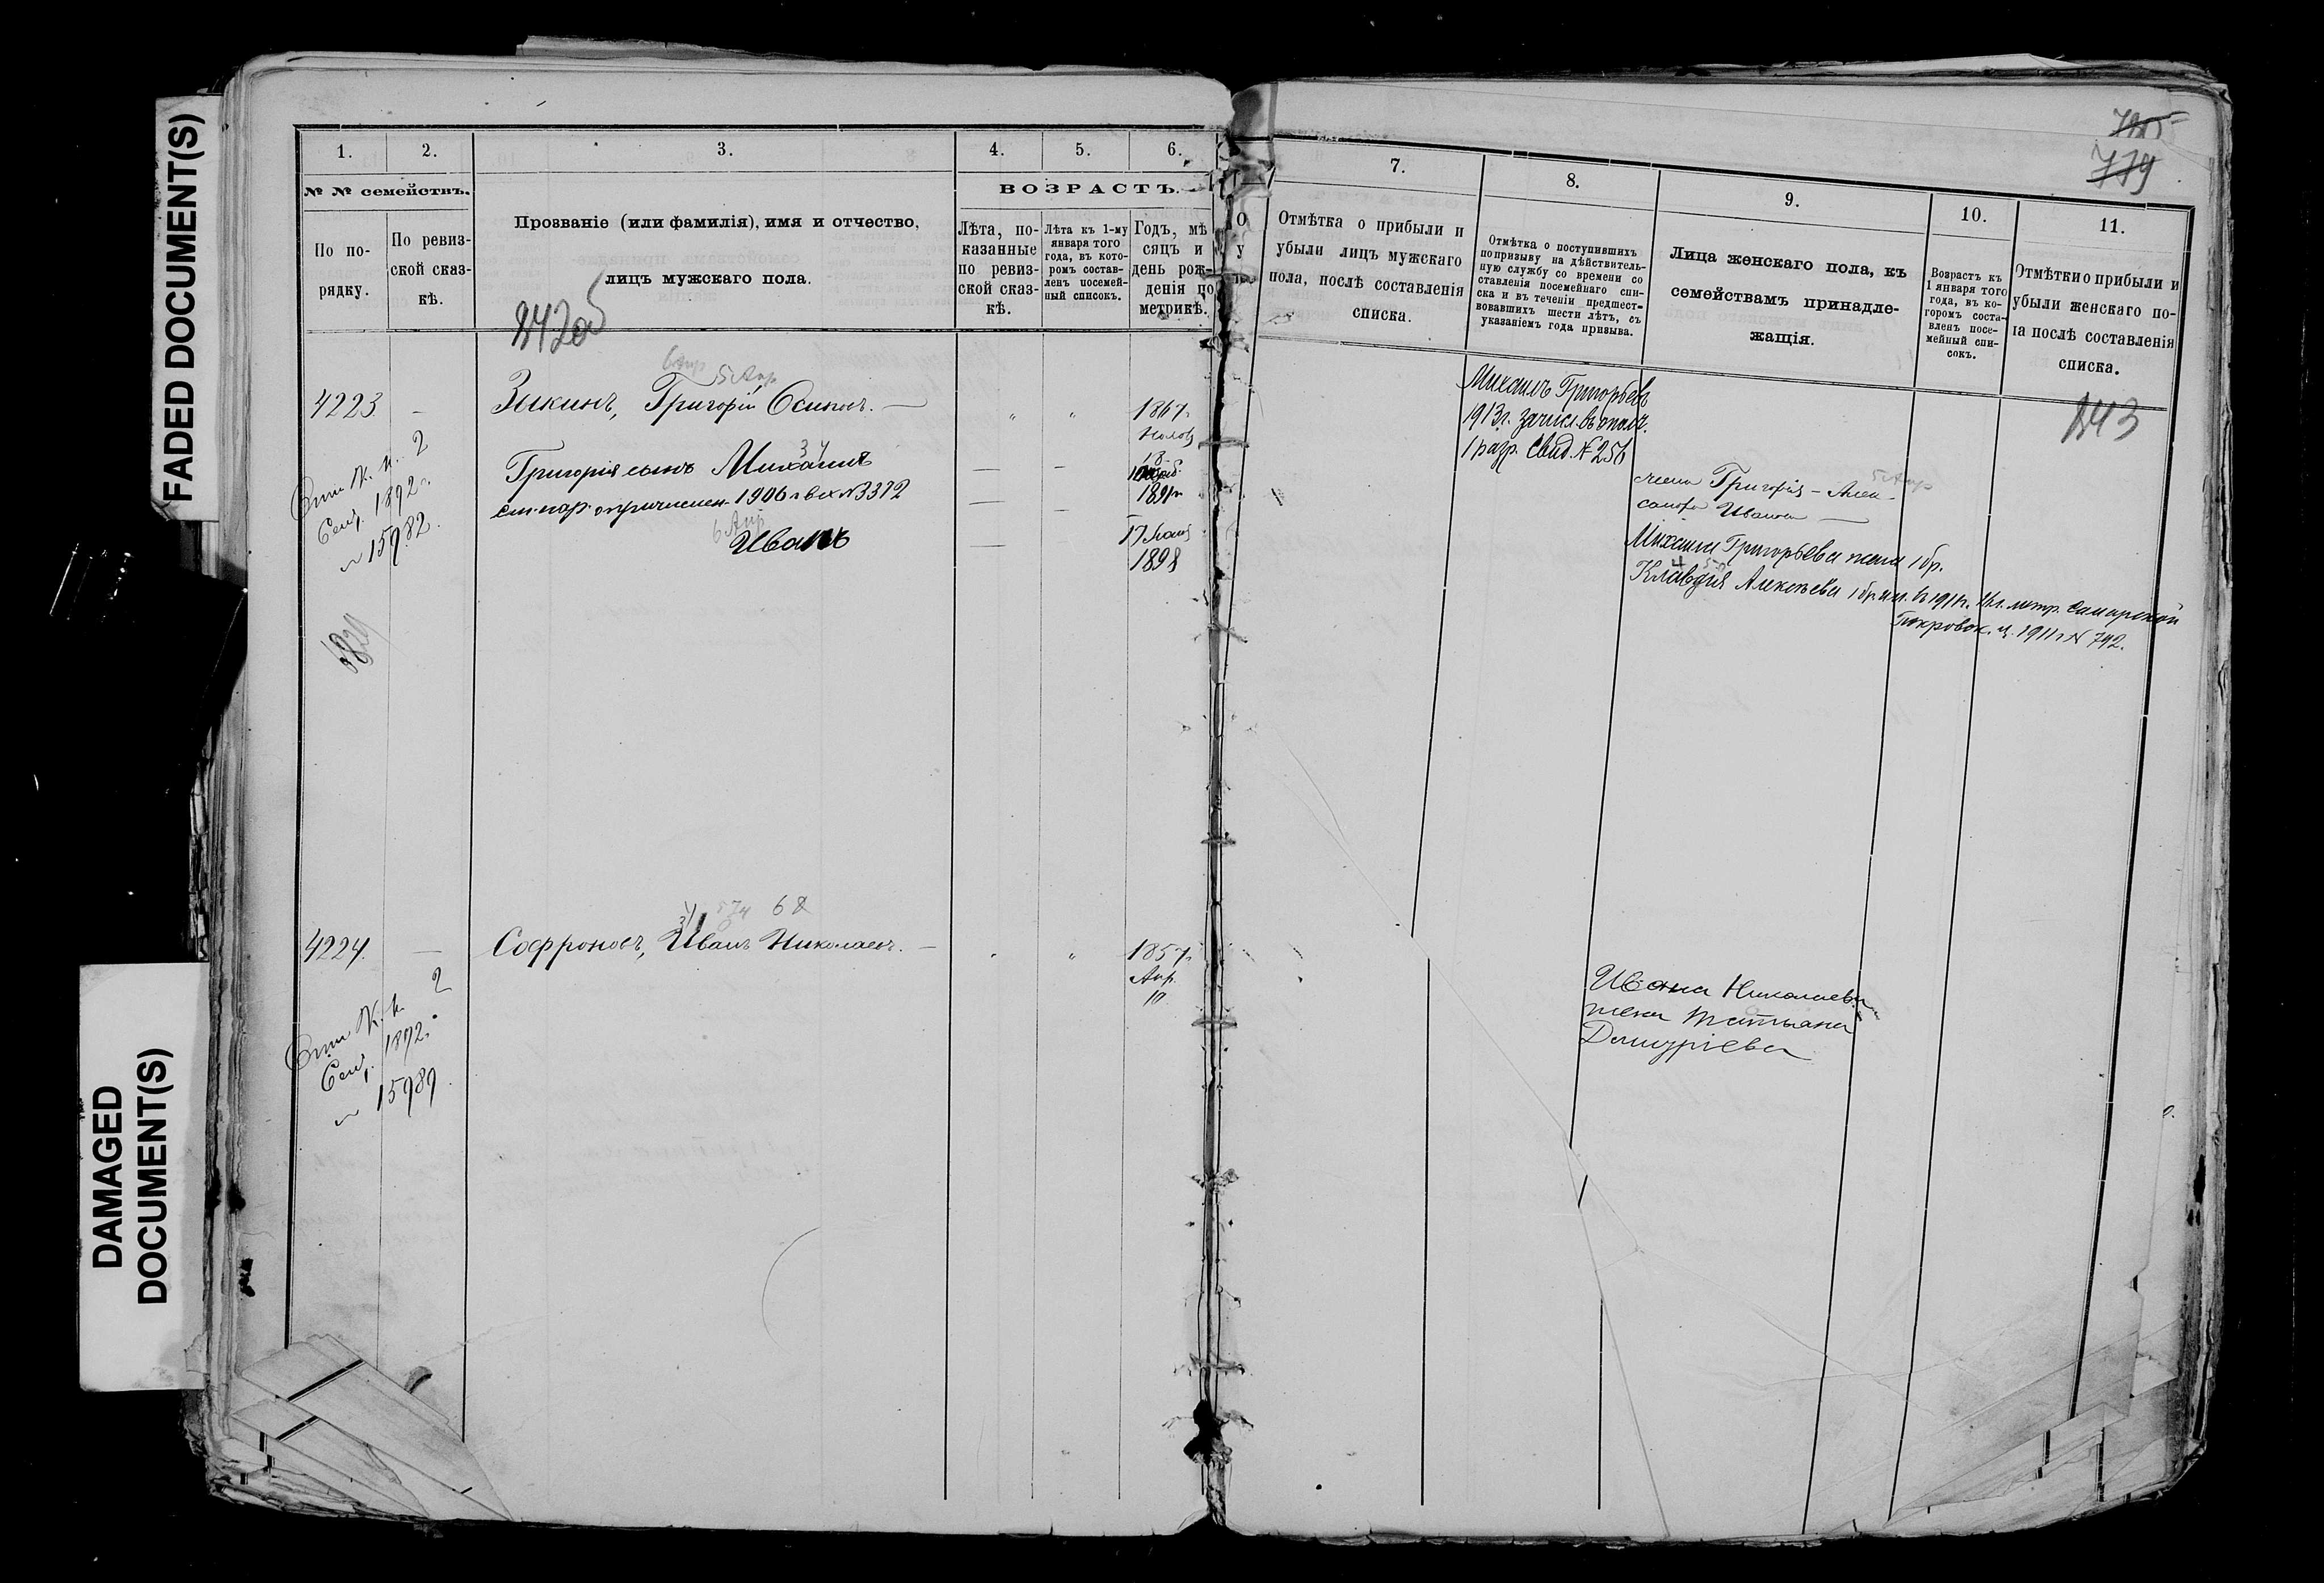 FADED DOCUMENT(S)
DAMAGED
DOCUMENT(S)
1.
2.
3.
4.
5.
6.
№ № семействъ.
ВОЗРАСТЪ.
По по-
рядку.
По ревиз-
ской сказ-
кѣ.
Прозваніе (или фамилія), имя и отчество,
лицъ мужскаго пола.
Лѣта, по-
казанные
по ревиз-
ской сказ-
кѣ.
Лѣта къ 1-му
января того
года, въ кото-
ромъ состав-
ленъ посемей-
ный списокъ.
Годъ, мѣ
сяцъ и
день рож-
денія по
метрикѣ.
842об
6 Апр 5 Апр
4223. — Зыкинъ, Григорій Осиповъ. — " " 1867г.
Григорія сынъ Михаилъ — —
34
18
1891г
причислен. 1906 г вх №3372
6 Апр
Иванъ — 17
1898
К. П. 2
Сент. 1892 г.
№ 15982.
68
4224. — Софроновъ, Иванъ Николаевъ. — " " 1857г.
Апр.
10
К. П. 2
Сент. 1892.
№ 15989.
7.
8.
9.
10.
11.
779
Отмѣтка о прибыли и
убыли лицъ мужскаго
пола, послѣ составленія
списка.
Отмѣтка о поступившихъ
по призыву на дѣйствитель-
ную службу со времени со
ставленія посемейнаго спи-
ска и въ теченіи предшест-
вовавшихъ шести лѣтъ, съ
указаніемъ года призыва.
Лица женскаго пола, къ
семействамъ принадле-
жащія.
Возрастъ къ
1 января того
года, въ ко-
торомъ соста-
вленъ посе-
мейный спи-
сокъ.
Отмѣтки о прибыли и
убыли женскаго по-
ла послѣ составленія
списка.
843
Михаилъ Григорьевъ
1913г. зачисл. въ ополч.
1 разр. Свид. № 256
5 Апр
жена Григорія — Алек-
сандра Иванова —
Михаила Григорьева жена 1 бр.
Клавдія Алексѣева 1 бр. въ 1911г. метр. Самарской
Покровск. ц. 1911 г № 792.
Ивана Николаева
жена Татьяна
Дмитріева